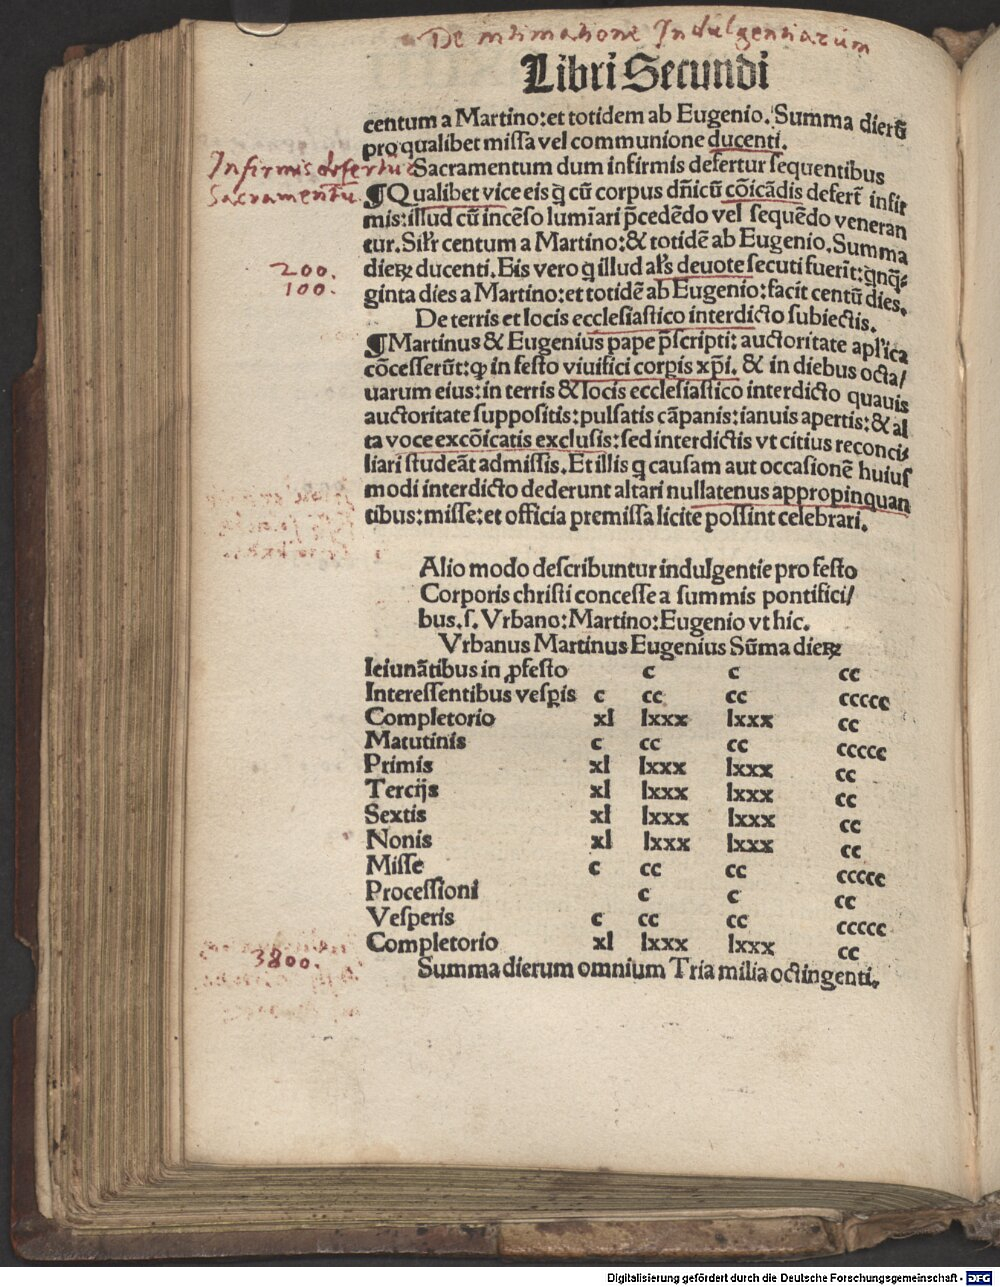 De intimatione Indulgentiarum
Libri Secundi
centum a Martino: et totidem ab Eugenio. Summa dierũ
pro qualibet missa vel communione ducenti.
Infirmis defertur
Sacramentũ.
Sacramentum dum infirmis defertur sequentibus
¶Qualibet vice eis q̃ cũ corpus dñicũ cõicãdis defert̃ infir
mis: illud cũ incẽso lumĩari p̃cedẽdo vel sequẽdo veneran
tur. Silr centum a Martino: & totidẽ ab Eugenio. Summa
200.
100.
dieꝝ ducenti. Eis vero q̃ illud als deuote secuti fuerĩt: qnq̃⸗
ginta dies a Martino: et totidẽ ab Eugenio: facit centũ dies.
De terris et locis ecclesiastico interdicto subiectis.
¶Martinus & Eugenius pape p̃scripti: auctoritate aplica
cõcesserũt: ꝙ in festo viuifici corꝑis xp̃i. & in diebus octa/
uarum eius: in terris & locis ecclesiastico interdicto quauis
auctoritate suppositis: pulsatis cãpanis: ianuis apertis: & al
ta voce excõicatis exclusis: sed interdictis vt citius reconci⸗
liari studeãt admissis. Et illis q̃ causam aut occasionẽ huius
modi interdicto dederunt altari nullatenus appropinquan
tibus: misse: et officia premissa licite possint celebrari.
Alio modo describuntur indulgentie pro festo
Corporis christi concesse a summis pontifici/
bus. s. Vrbano: Martino: Eugenio vt hic.
Vrbanus Martinus Eugenius Sũma dieꝝ
Ieiunãtibus in ꝓfesto c c cc
Interessentibus vesꝑis c cc cc ccccc
Completorio xl lxxx lxxx cc
Matutinis c cc cc ccccc
Primis xl lxxx lxxx cc
Tercijs xl lxxx lxxx cc
Sextis xl lxxx lxxx cc
Nonis xl lxxx lxxx cc
Misse c cc cc ccccc
Processioni c c cc
Vesperis c cc cc ccccc
Completorio xl lxxx lxxx cc
3800.
Summa dierum omnium Tria milia octingenti.
Digitalisierung gefördert durch die Deutsche Forschungsgemeinschaft - DFG